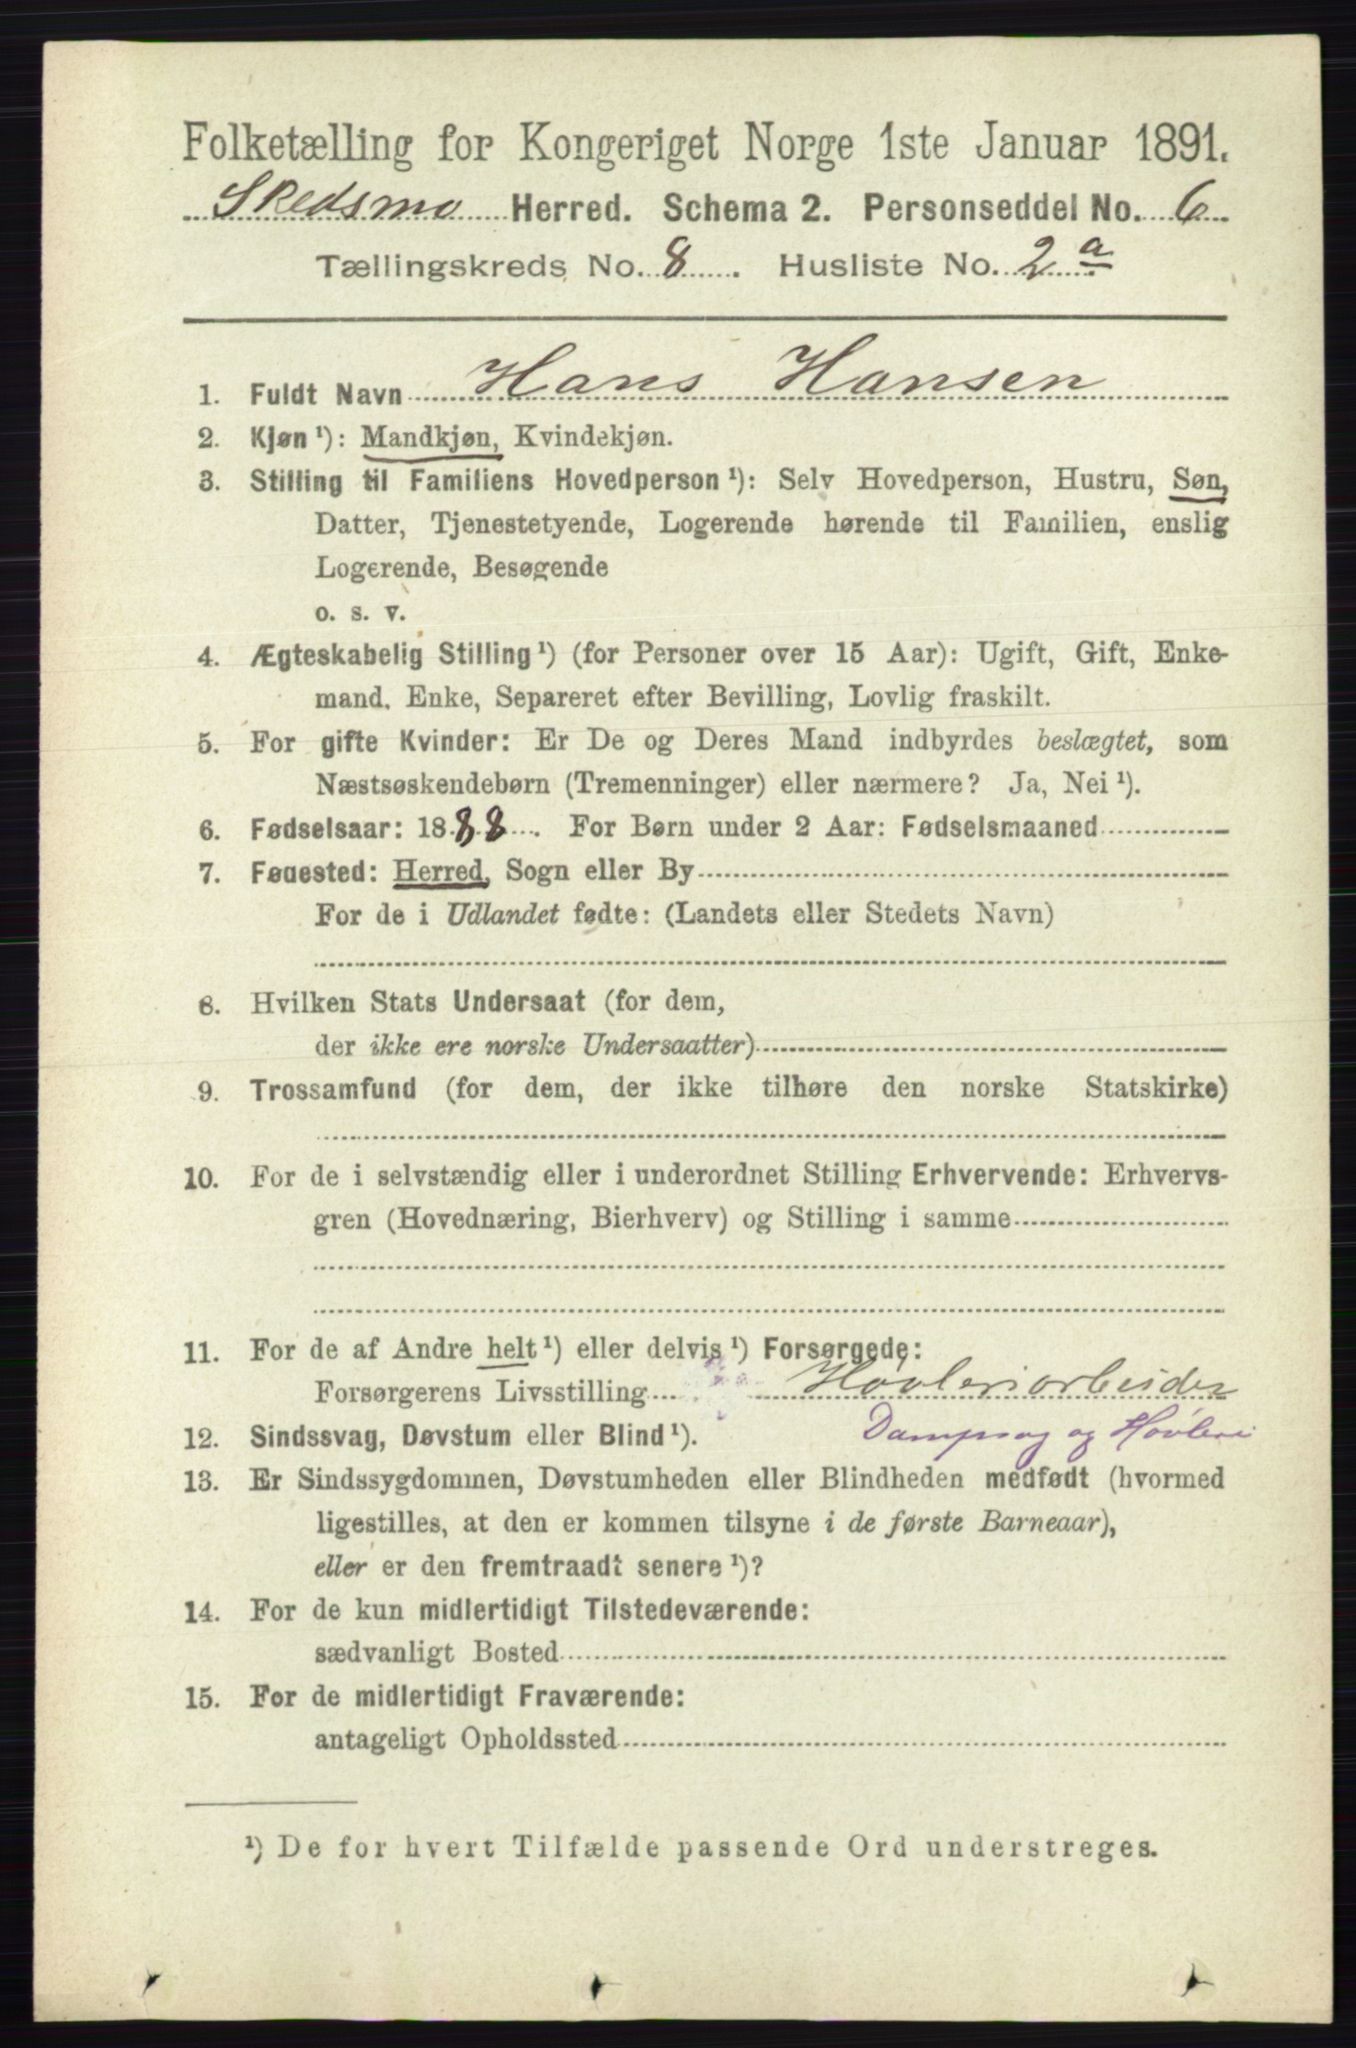 Folketælling for Kongeriget Norge 1ste Januar 1891.
Skedsmo Herred. Schema 2. Personseddel No. 6
Tællingskreds No. 8. Husliste No. 2 a
1. Fuldt Navn Hans Hansen
2. Kjøn ¹): Mandkjøn, Kvindekjøn.
3. Stilling til Familiens Hovedperson ¹): Selv Hovedperson, Hustru, Søn,
Datter, Tjenestetyende, Logerende hørende til Familien, enslig
Logerende, Besøgende
o. s. v.
4. Ægteskabelig Stilling ¹) (for Personer over 15 Aar): Ugift, Gift, Enke-
mand, Enke, Separeret efter Bevilling, Lovlig fraskilt.
5. For gifte Kvinder: Er De og Deres Mand indbyrdes beslægtet, som
Næstsøskendebørn (Tremenninger) eller nærmere? Ja, Nei ¹).
6. Fødselsaar: 1888. For Børn under 2 Aar: Fødselsmaaned
7. Fødested: Herred, Sogn eller By
For de i Udlandet fødte: (Landets eller Stedets Navn)
8. Hvilken Stats Undersaat (for dem,
der ikke ere norske Undersaatter)
9. Trossamfund (for dem, der ikke tilhøre den norske Statskirke)
10. For de i selvstændig eller i underordnet Stilling Erhvervende: Erhvervs-
gren (Hovednæring, Bierhverv) og Stilling i samme
11. For de af Andre helt ¹) eller delvis ¹) Forsørgede:
Forsørgerens Livsstilling Høvleriarbeider
12. Sindssvag, Døvstum eller Blind ¹). Dampsag og Høvleri
13. Er Sindssygdommen, Døvstumheden eller Blindheden medfødt (hvormed
ligestilles, at den er kommen tilsyne i de første Barneaar),
eller er den fremtraadt senere ¹)?
14. For de kun midlertidigt Tilstedeværende:
sædvanligt Bosted
15. For de midlertidigt Fraværende:
antageligt Opholdssted
¹) De for hvert Tilfælde passende Ord understreges.